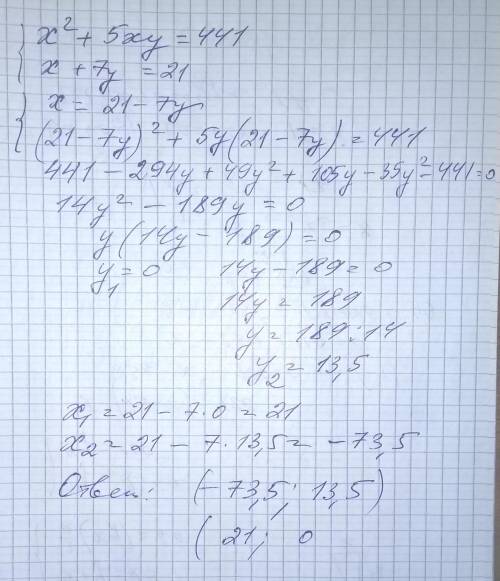 x² + 5xy = 441
x + 7y = 21
x = 21 - 7y
(21 - 7y)² + 5y(21 - 7y) = 441
441 - 294y + 49y² + 105y - 35y² - 441 = 0
14y² - 189y = 0
y(14y - 189) = 0
y₁ = 0 14y - 189 = 0
14y = 189
y = 189 : 14
y₂ = 13,5
x₁ = 21 - 7·0 = 21
x₂ = 21 - 7·13,5 = -73,5
Ответ: (-73,5; 13,5)
(21; 0